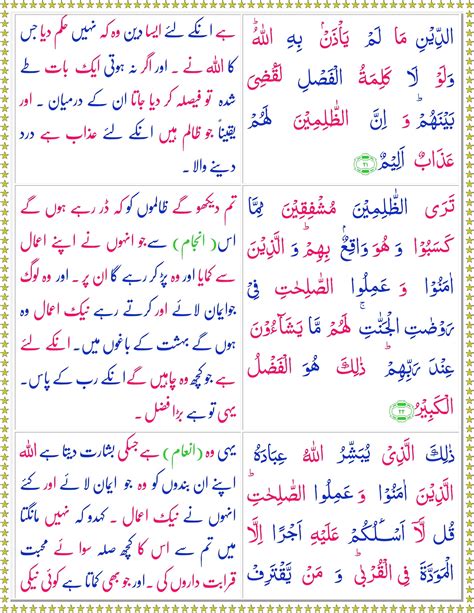 الدِّيۡنِ مَا لَمۡ يَاۡذَنۡۢ بِهِ اللّٰهُ ؕ
وَلَوۡ لَا كَلِمَةُ الۡفَصۡلِ لَقُضِىَ
بَيۡنَهُمۡ ؕ وَ اِنَّ الظّٰلِمِيۡنَ لَهُمۡ
عَذَابٌ اَلِيۡمٌ ﴿۲۱﴾
ہے انکے لئے ایسا دین وہ کہ نہیں حکم دیا جس
کا اللہ نے ۔ اور اگر نہ ہوتی ایک بات طے
شدہ تو فیصلہ کر دیا جاتا ان کے درمیان ۔ اور
یقیناً جو ظالم ہیں انکے لئے عذاب ہے درد
دینے والا ۔
تَرَى الظّٰلِمِيۡنَ مُشۡفِقِيۡنَ مِمَّا
كَسَبُوۡا وَ هُوَ وَاقِعٌۢ بِهِمۡ ؕ وَ الَّذِيۡنَ
اٰمَنُوۡا وَ عَمِلُوا الصّٰلِحٰتِ فِىۡ
رَوۡضٰتِ الۡجَـنّٰتِ ۚ لَهُمۡ مَّا يَشَآءُوۡنَ
عِنۡدَ رَبِّهِمۡ ؕ ذٰلِكَ هُوَ الۡفَضۡلُ
الۡكَبِيۡرُ ﴿۲۲﴾
تم دیکھو گے ظالموں کو کہ ڈر رہے ہوں گے
اس (انجام) سے جو انہوں نے اپنے اعمال
سے کمایا اور وہ پڑ کر رہے گا ان پر ۔ اور وہ لوگ
جو ایمان لائے اور کرتے رہے نیک اعمال وہ
ہوں گے بہشت کے باغوں میں ۔ انکے لئے
ہے جو کچھ وہ چاہیں گے انکے رب کے پاس۔
یہی تو ہے بڑا فضل ۔
ذٰلِكَ الَّذِىۡ يُبَشِّرُ اللّٰهُ عِبَادَهُ
الَّذِيۡنَ اٰمَنُوۡا وَ عَمِلُوا الصّٰلِحٰتِ ؕ
قُلْ لَّاۤ اَسۡـــَٔلُكُمۡ عَلَيۡهِ اَجۡرًا اِلَّا
الۡمَوَدَّةَ فِى الۡقُرۡبٰى ؕ وَ مَنۡ يَّقۡتَرِفۡ
یہی وہ (انعام) ہے جسکی بشارت دیتا ہے اللہ
اپنے ان بندوں کو وہ جو ایمان لائے اور
انہوں نے نیک اعمال ۔ کہدو کہ نہیں مانگتا
میں تم سے اس کا کچھ صلہ سوائے محبت
قرابت داروں کی ۔ اور جو بھی کماتا ہے کوئی نیکی